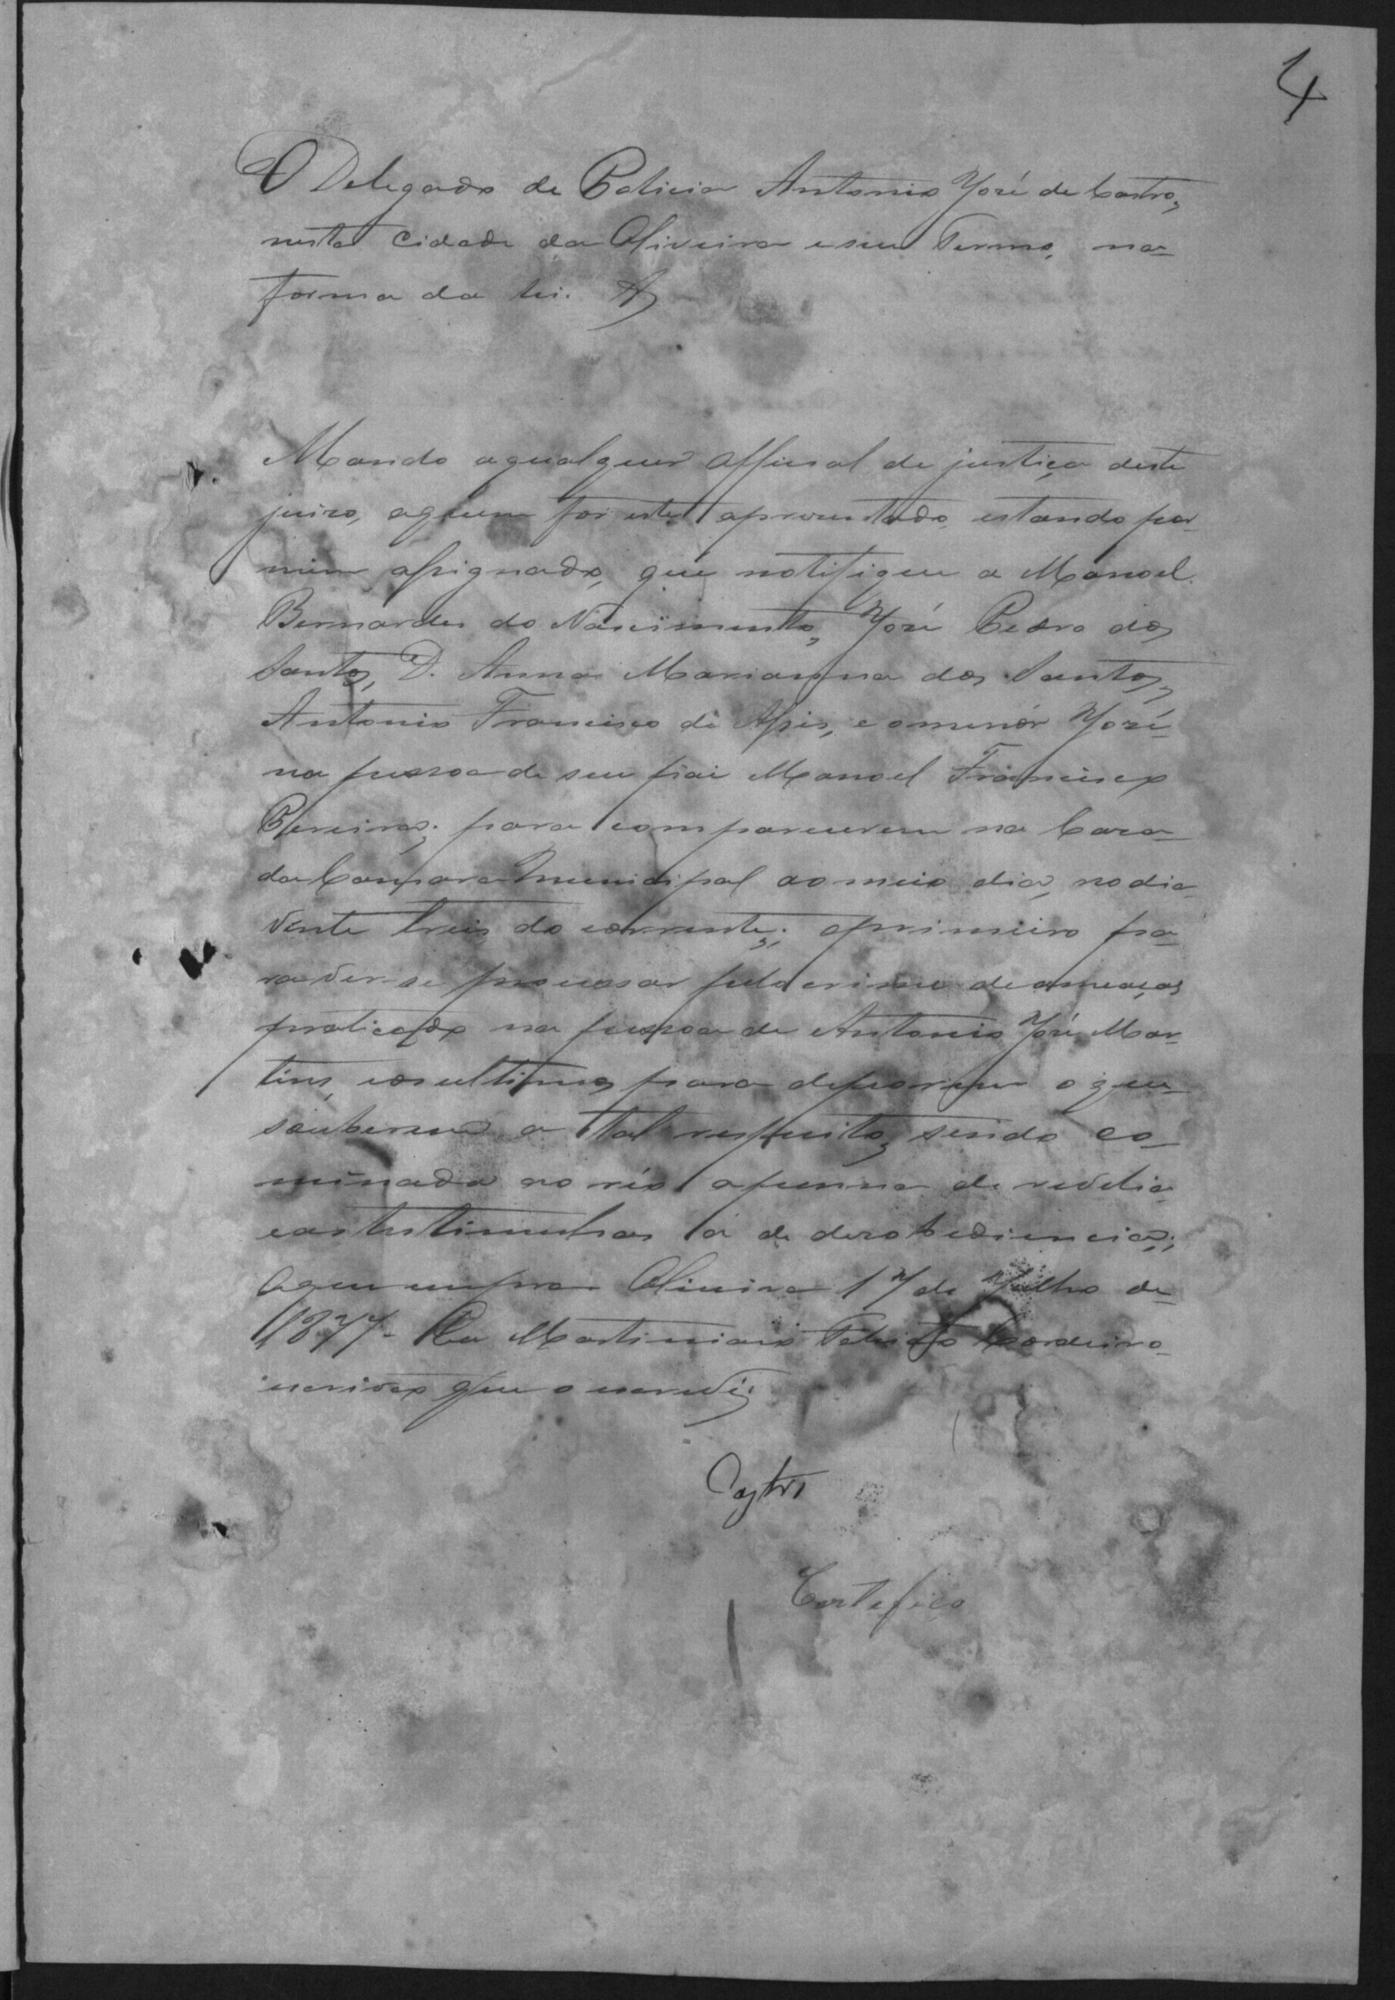 4
O Delegado de Policia Antonio José de Castro,
nesta Cidade da Oliveira e seu Termo, na
forma da lei. &
Mando aqualquer Official de justiça deste
juizo, aquem for este apresentado, estando por
mim assignado, que notifique a Manoel
Bernardes do Nascimento, José Pedro dos
Santos, D. Anna Marianna dos Santos,
Antonio Francisco de Assis, e o menór José
na pessoa de seu pai Manoel Francisco
Pereira; para comparecerem na Caza
da Camara Municipal ao meio dia, no dia
vinte treis do corrente; o primeiro pa-
ra ver-se processar pelo crime de ameaças
praticado na pessoa de Antonio José Mar-
tins, e os ultimos para deporem o que
souberem a tal respeito, sendo co-
minada ao réo a penna de revelia
e as testimunhas a de desobediencia;
o que cumpra Oliveira 17 de Julho de
1877. Eu Martiniano Cordeiro
escrivão que o escrevi;
Castro
Certefico